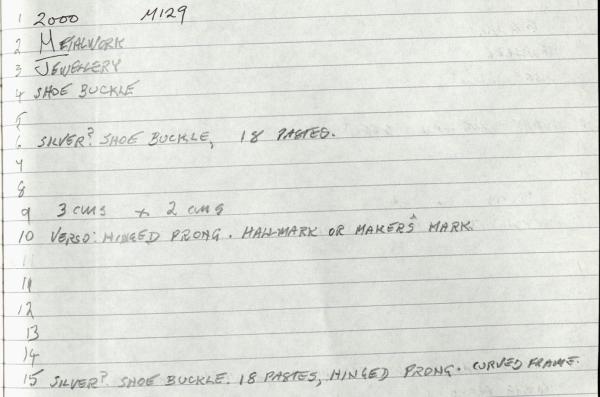 1 2000 M129
2 METALWORK
3 JEWELLERY
4 SHOE BUCKLE
5
6 SILVER? SHOE BUCKLE, 18 PASTES.
7
8
9 3 cms x 2 cms
10 VERSO: HINGED PRONG. HALLMARK OR MAKERS^ MARK.
11
11
12
13
14
15 SILVER? SHOE BUCKLE. 18 PASTES, HINGED PRONG. CURVED FRAME.